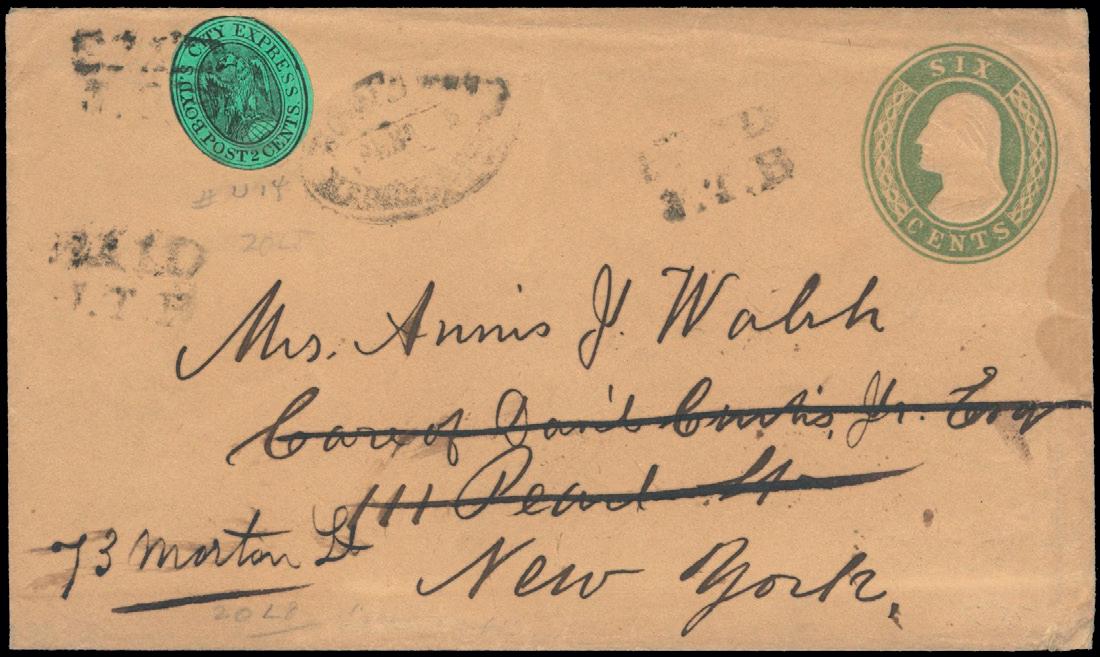 BOYD'S CITY EXPRESS
POST 2 CENTS.
SIX
CENTS
PAID
J.T.B
PAID
J.T.B
# U14
20L
Mrs. Annis J. Walsh
Care of Dan'l Curtis, Jr. Esq
111 Pearl St
73 Morton St
New York.
20L8